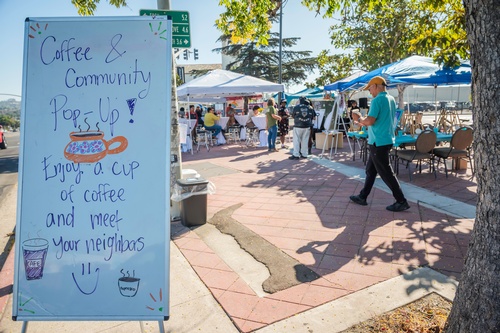 Coffee &
Community
Pop-Up!
Enjoy a cup
of coffee
and meet
your neighbors
CAFE
52
4.6
3.6